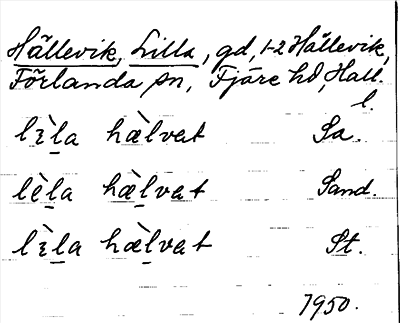 Hällevik, Lilla, gd, 1-2 Hällevik,
Förlanda sn, Fjäre hd, Hall.
l.
lìla hæ̀lvat Sa.
lèla hæ̀lvat Sand.
lìla hæ̀lvat St.
1950.